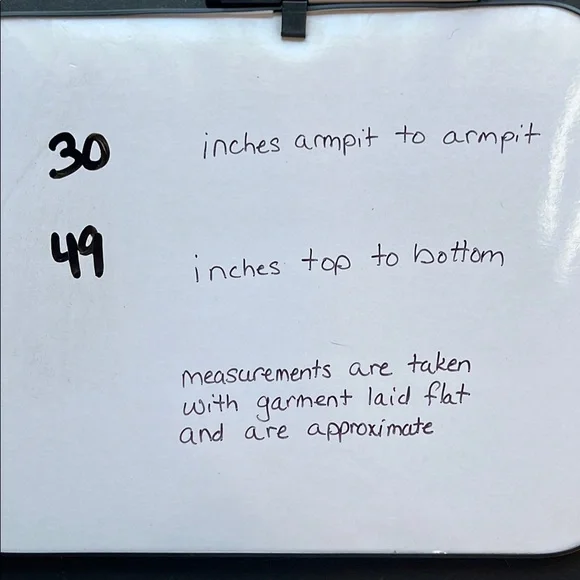 30 inches armpit to armpit
49 inches top to bottom
measurements are taken
with garment laid flat
and are approximate